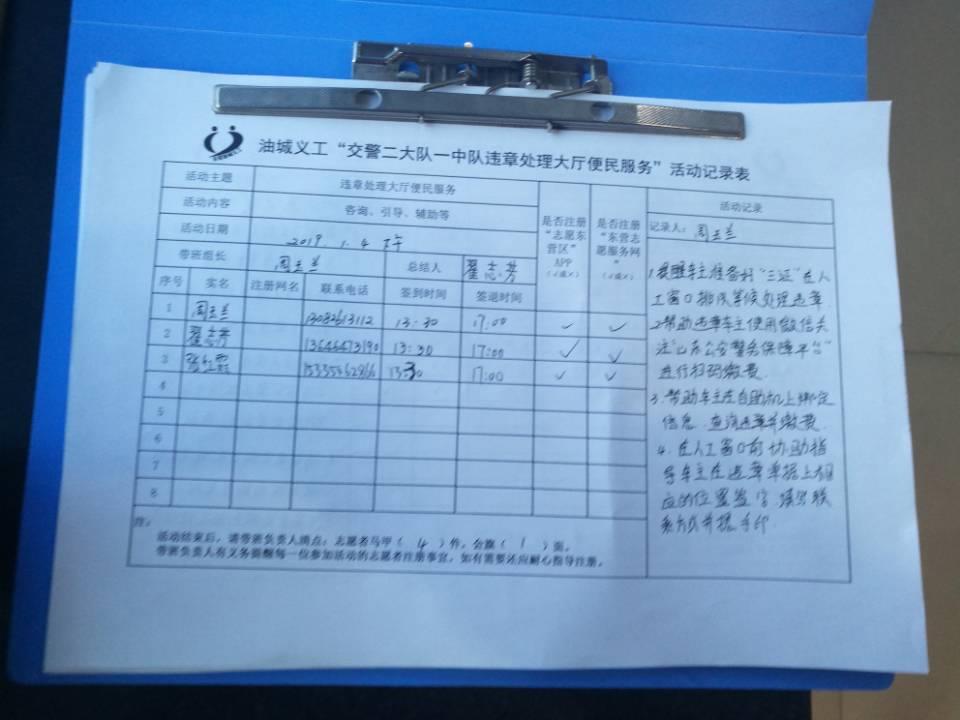 油城义工“交警二大队一中队违章处理大厅便民服务”活动记录表
活动主题 违章处理大厅便民服务
活动内容 咨询、引导、辅助等
活动日期 2019.1.4 下午
带班组长 周玉兰 总结人 翟志芳
序号 实名 注册网名 联系电话 签到时间 签退时间
是否注册“志愿东营区”APP（√或×）
是否注册“东营志愿服务网”（√或×）
1 周玉兰 13082613112 13:30 17:00 √ √
2 翟志芳 13646473190 13:30 17:00 √ √
3 15335462866 13:30 17:00 √ √
4
5
6
7
8
注：
活动结束后，请带班负责人清点：志愿者马甲（ 4 ）件，会旗（ 1 ）面。
带班负责人有义务提醒每一位参加活动的志愿者注册事宜，如有需要还应耐心指导注册。
活动记录
记录人：周玉兰
1.提醒车主准备好“三证”在人
工窗口排队等候处理违章
2.帮助违章车主使用微信关
注“山东公安警务保障平台”
进行扫码缴费.
3.帮助车主在自助机上绑定
信息.查询违章并缴费.
4.在人工窗口前协助指
导车主在违章单据上相
应的位置签字.填写联
系方式并摁手印